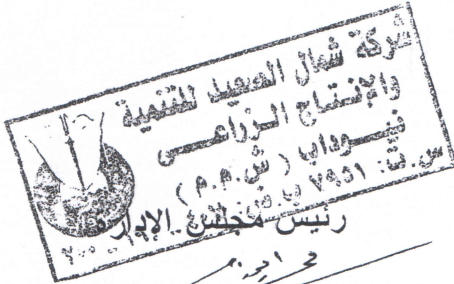 شركة شمال الصعيد للتنمية
والإنتاج الزراعى
نيوداب (ش.م.م)
س.ت: ٧٩٥١
رئيس مجلس الإدارة